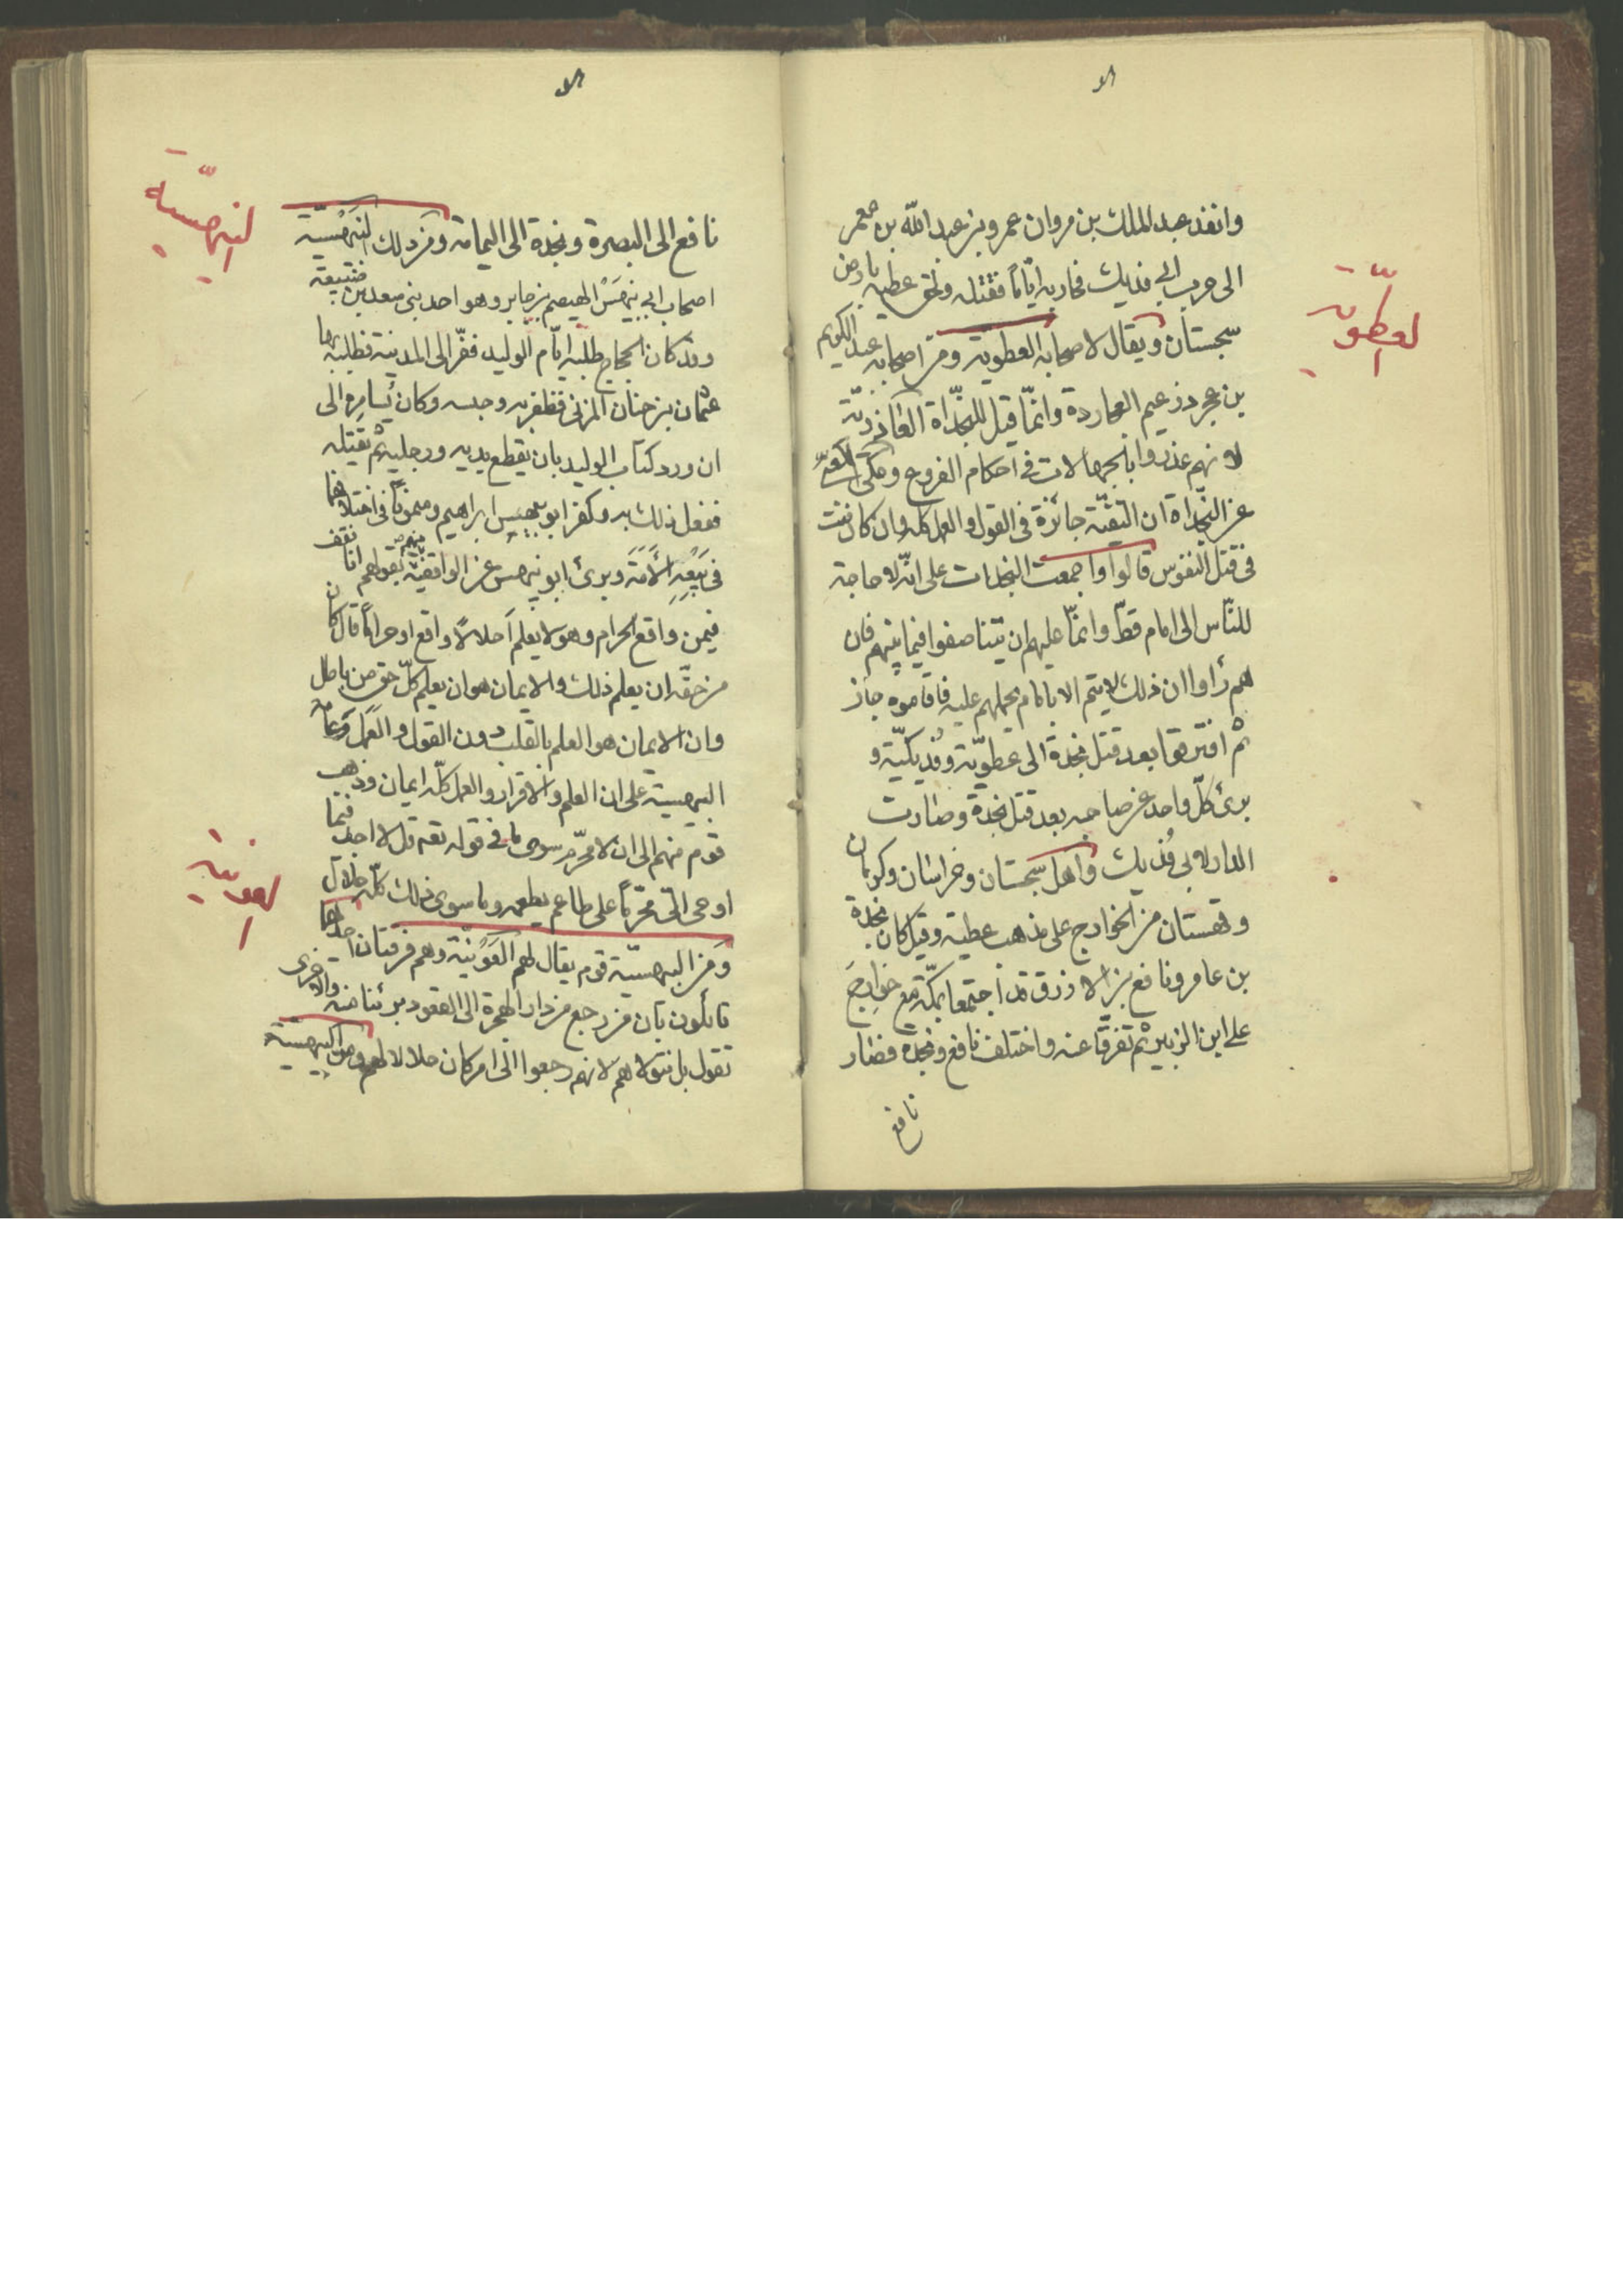 وانفذ عبد الملك بن مروان عمرو بن عبد الله بن معمر
الى حرب ابى فديك فحاربه ايّاماً فقتله ولحق عطيه بارض
سجستان ويقال لاصحابه العطويه ومن اصحابه عبد الكريم
بن عجرد زعيم العجاردة وانمّا قيل للنجداة العاذريّة
لانهم عذروا بالجهالات فى احكام الفروع وحكى
عن النجداة ان التقيّة جائزة فى القول والعمل كله وان كانت
فى قتل النفوس قالوا واجمعت النجدات على انّه لا حاجة
للنّاس الى امام قطّ وانمّا عليهم ان يتناصفوا فيما بينهم فان
هم رأوا ان ذلك لا يتم الا بامام يحملهم عليه فاقاموه جاز
ثم افترقوا بعد قتل نجدة الى عطويّة وفديكيّة و
برئ كلّ واحد عن صاحبه بعد قتل نجدة وصارت
الدار لابى فديك واهل سجستان وخراسان وكرمان
وقهستان من الخوارج على مذهب عطية وقيل كان نجدة
بن عامر ونافع بن الازرق قد اجتمعا بمكّة مع خوارج
على ابن الزبير ثم تفرّقا عنه واختلف نافع ونجدة فصار
نافع
العطّوية
نافع الى البصرة ونجدة الى اليمامة ومن ذلك البَيْهَسْيّة
اصحاب ابى بَيْهَسْ الهيصم بن جابر وهو احد بنى سعد بن ضبيعة
وقد كان الحجاج طلبه ايّام الوليد ففرّ الى المدينة فطلبه بها
عثمان بن حنان المزنى فظفر به وحبسه وكان يُسامره الى
ان ورد كتاب الوليد بان يقطع يديه ورجليه ثم يقتله
ففعل ذلك به وكفر ابو بيهس ابراهيم وميمونًا فى اختلافهما
فى بَيْعِ الأَمَة وبرئ ابو بيهس عن الواقفيّة بقولهم انا نقف
فيمن واقع الحرام وهو لا يعلم أحلالاً واقع او حراماً قال كان
من حقّه ان يعلم ذلك والايمان هو ان يعلم كلّ حق من باطل
وان الايمان هو العلم بالقلب دون القول والعمل وعامّة
البيهسية على ان العلم والاقرار والعمل كلّه ايمان وذهب
قوم منهم الى ان لا محرّم سوى ما فى قوله تعه قل لا اجد فيما
اوحى الىّ محرّماً على طاعم يطعمه وما سوى ذلك كلّه حلال
ومن البيهسيّة قوم يقال لهم العَوْنيّة وهم فرقتان احداهما
قائلون بان من رجع من دار الهجرة الى القعود برئنا منه والاخرى
تقول بل نتولاهم لانهم رجعوا الى امر كان حلالا لهم ومن البيهسيّة
البيهسيّة
العونية